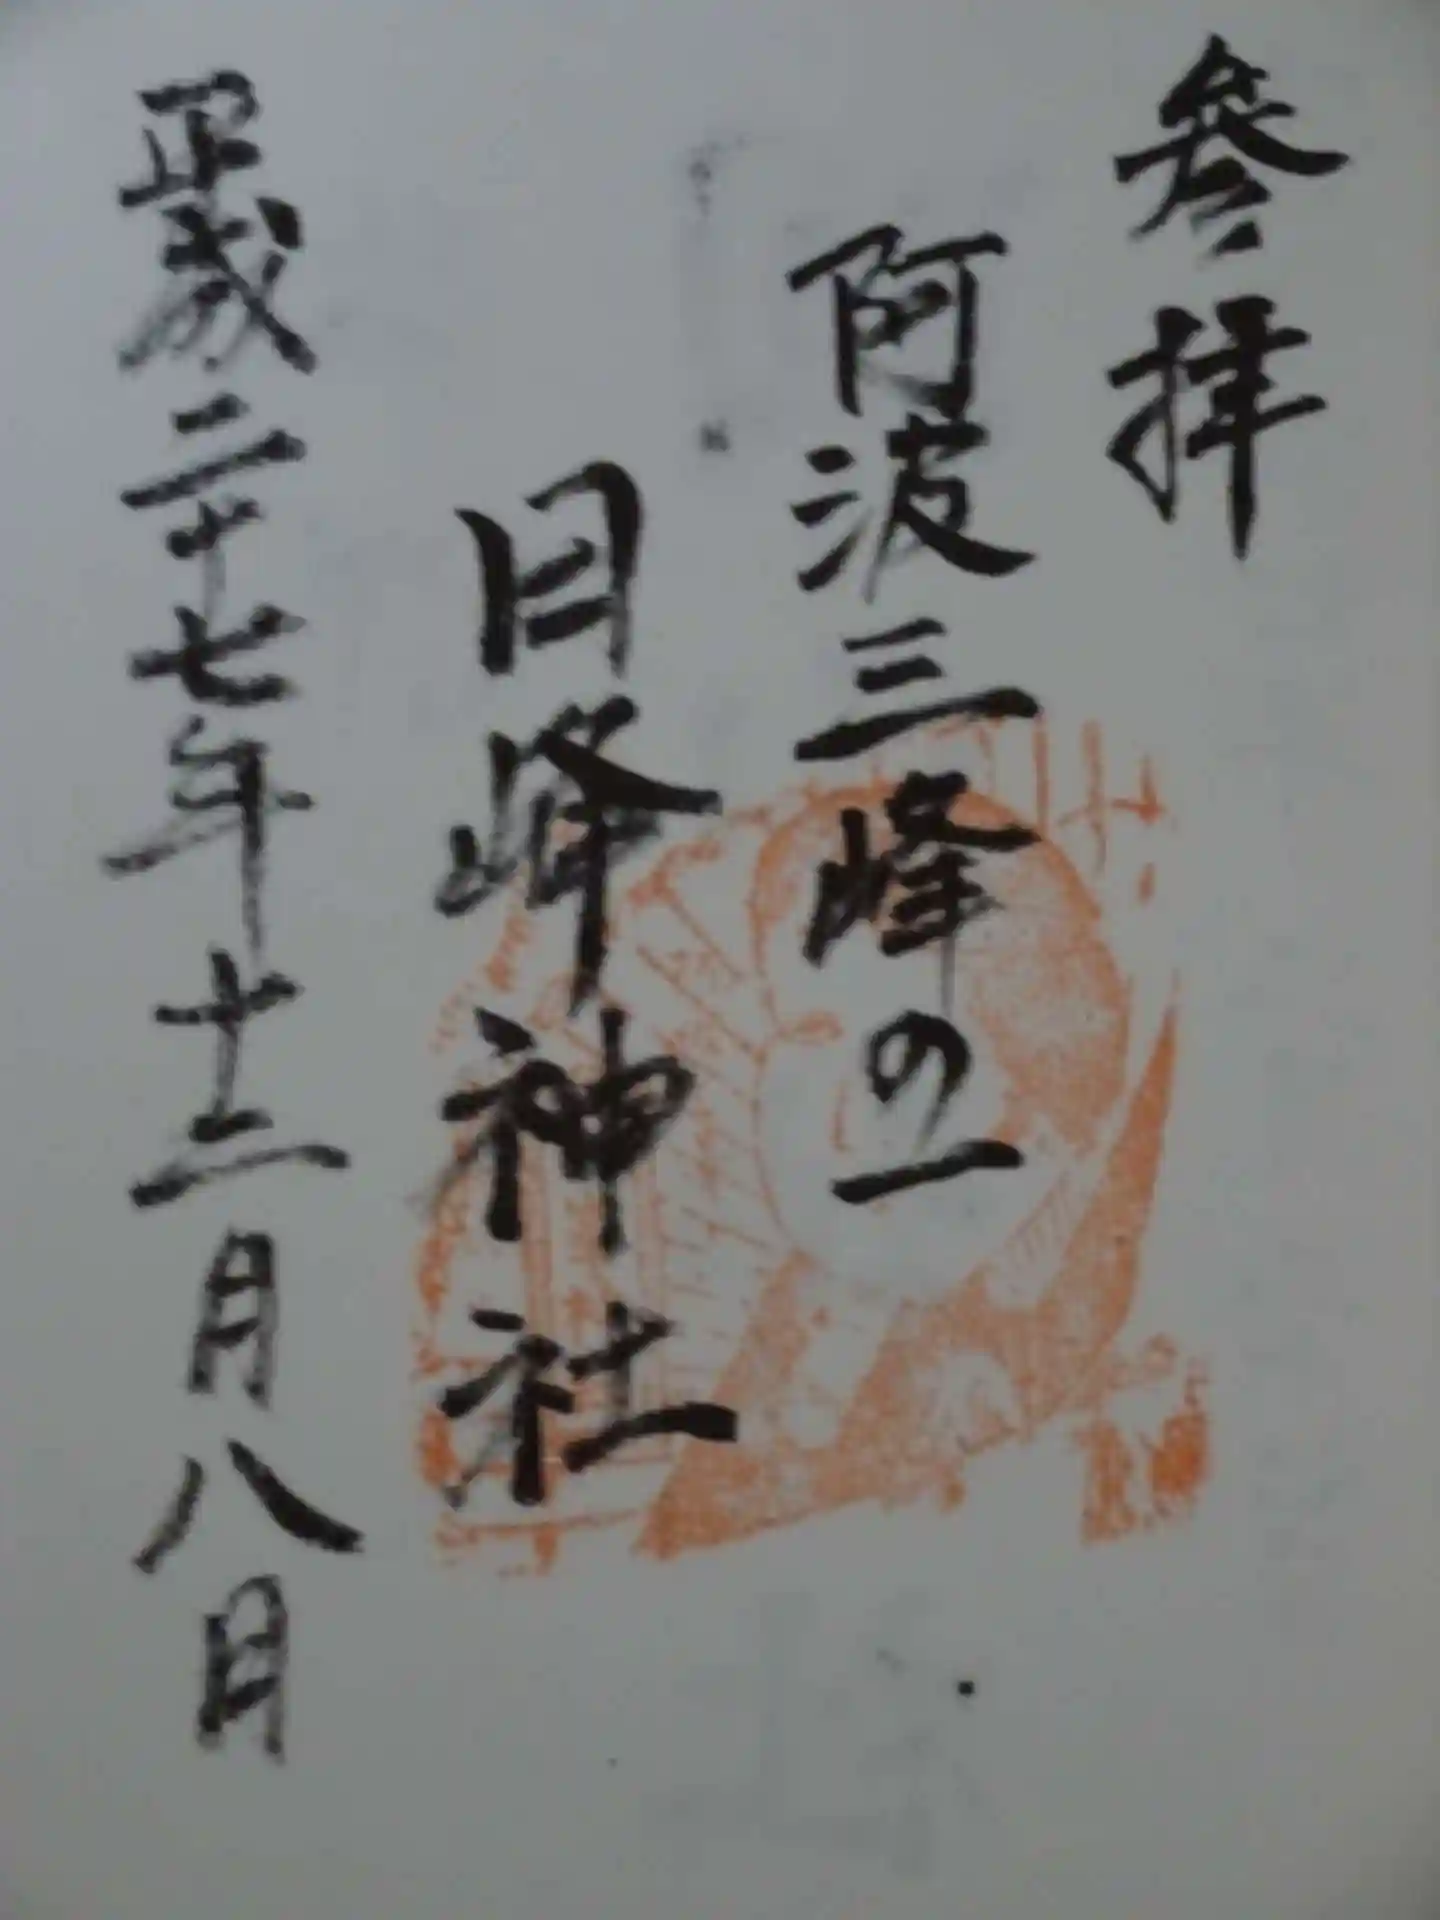 参拝
阿波三峰の一
日峰神社
平成二十七年十二月八日